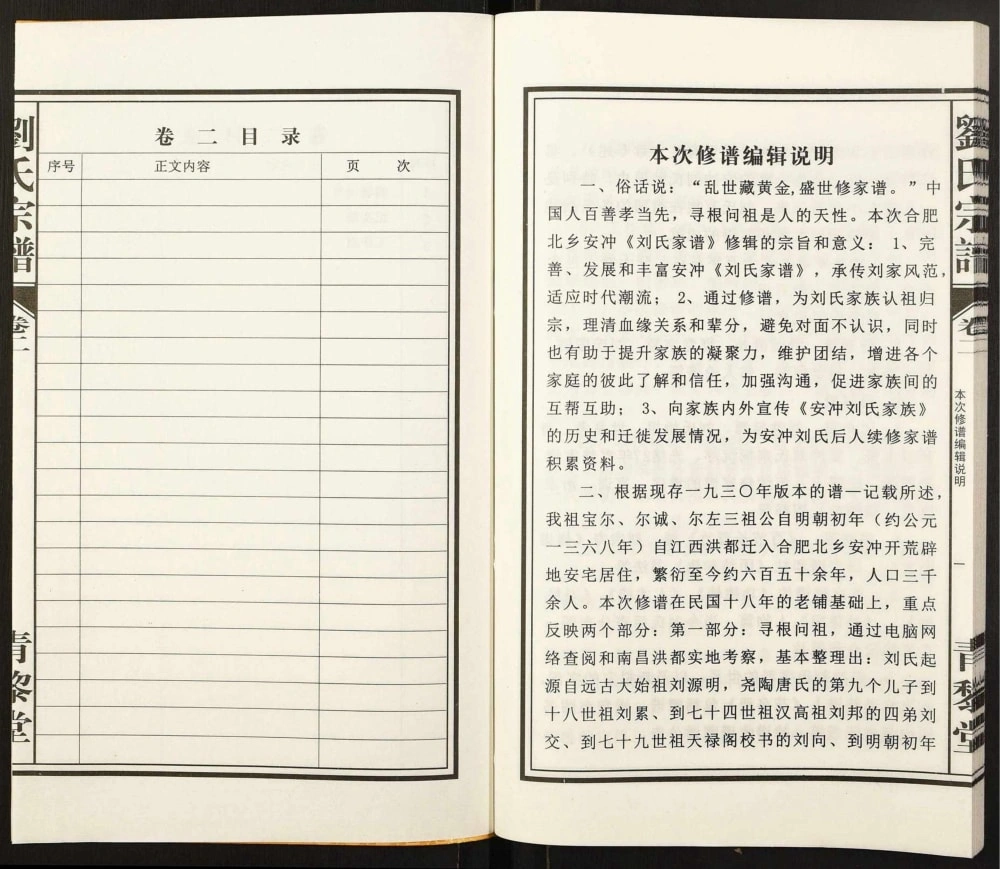 劉氏宗譜
卷二
青黎堂
卷二目录
序号 正文内容 页次
本次修谱编辑说明
一、俗话说：“乱世藏黄金,盛世修家谱。”中
国人百善孝当先，寻根问祖是人的天性。本次合肥
北乡安冲《刘氏家谱》修辑的宗旨和意义：1、完
善、发展和丰富安冲《刘氏家谱》，承传刘家风范，
适应时代潮流；2、通过修谱，为刘氏家族认祖归
宗，理清血缘关系和辈分，避免对面不认识，同时
也有助于提升家族的凝聚力，维护团结，增进各个
家庭的彼此了解和信任，加强沟通，促进家族间的
互帮互助；3、向家族内外宣传《安冲刘氏家族》
的历史和迁徙发展情况，为安冲刘氏后人续修家谱
积累资料。
二、根据现存一九三〇年版本的谱—记载所述，
我祖宝尔、尔诚、尔左三祖公自明朝初年（约公元
一三六八年）自江西洪都迁入合肥北乡安冲开荒辟
地安宅居住，繁衍至今约六百五十余年，人口三千
余人。本次修谱在民国十八年的老铺基础上，重点
反映两个部分：第一部分：寻根问祖，通过电脑网
络查阅和南昌洪都实地考察，基本整理出：刘氏起
源自远古大始祖刘源明，尧陶唐氏的第九个儿子到
十八世祖刘累、到七十四世祖汉高祖刘邦的四弟刘
交、到七十九世祖天禄阁校书的刘向、到明朝初年
劉氏宗譜
卷二
本次修谱编辑说明
一
青黎堂